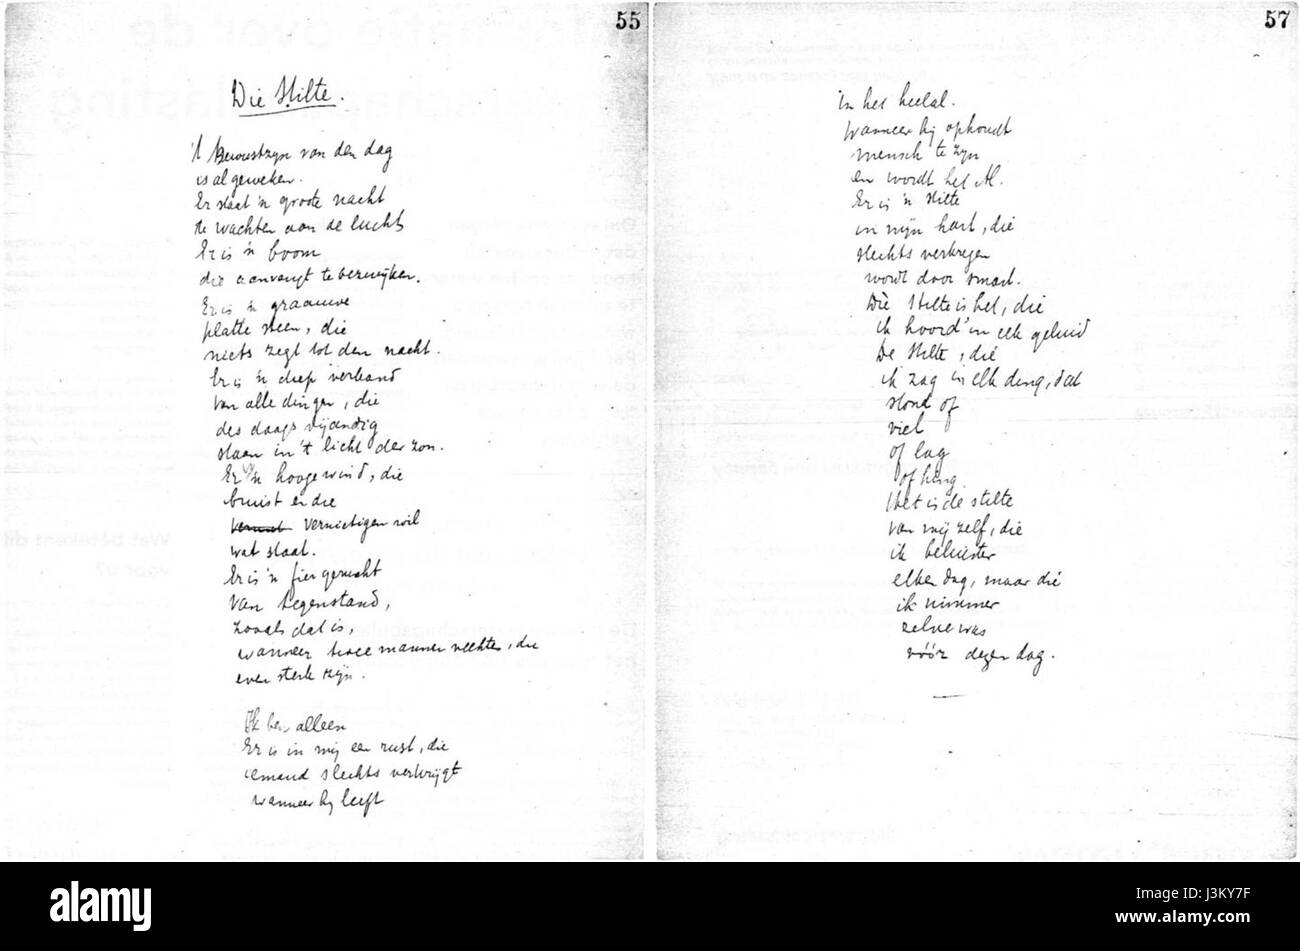 55
Die Stilte.
't Bewustzijn van den dag
is al geweken.
Er staat 'n groote nacht
te wachten aan de lucht
Er is 'n boom
die aanvangt te bezwijken.
Er is 'n graauwe
platte steen, die
niets zegt tot den nacht.
Er is 'n diep verband
van alle dingen, die
des daags vijandig
staan in 't licht der zon.
Er is 'n hooge wind, die
bruist en die
vernietigen wil
wat staat.
Er is 'n fier gerucht
van tegenstand,
zooals dat is,
wanneer twee mannen vechten, die
even sterk zijn.
Ik ben alleen
Er is in mij een rust, die
iemand slechts verkrijgt
wanneer hij leeft
57
in het heelal.
Wanneer hij ophoudt
mensch te zijn
en wordt het Al.
Er is 'n stilte
in mijn hart, die
slechts verkregen
wordt door smart.
Die stilte is het, die
ik hoord' in elk geluid
De stilte, die
ik zag in elk ding, dat
stond of
viel
of lag
of hing.
Het is de stilte
van mij zelf, die
ik beluister
elken dag, maar die
ik nimmer
zelve was
vóór dezen dag.
alamy
alamy
Image ID: J3KY7F
www.alamy.com